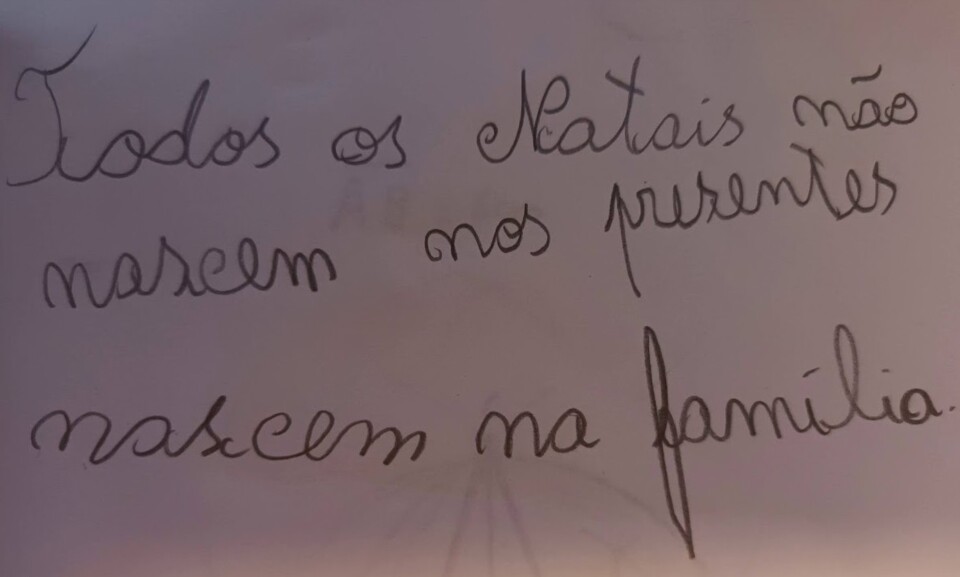 Todos os Natais não
nascem nos presentes
nascem na família.